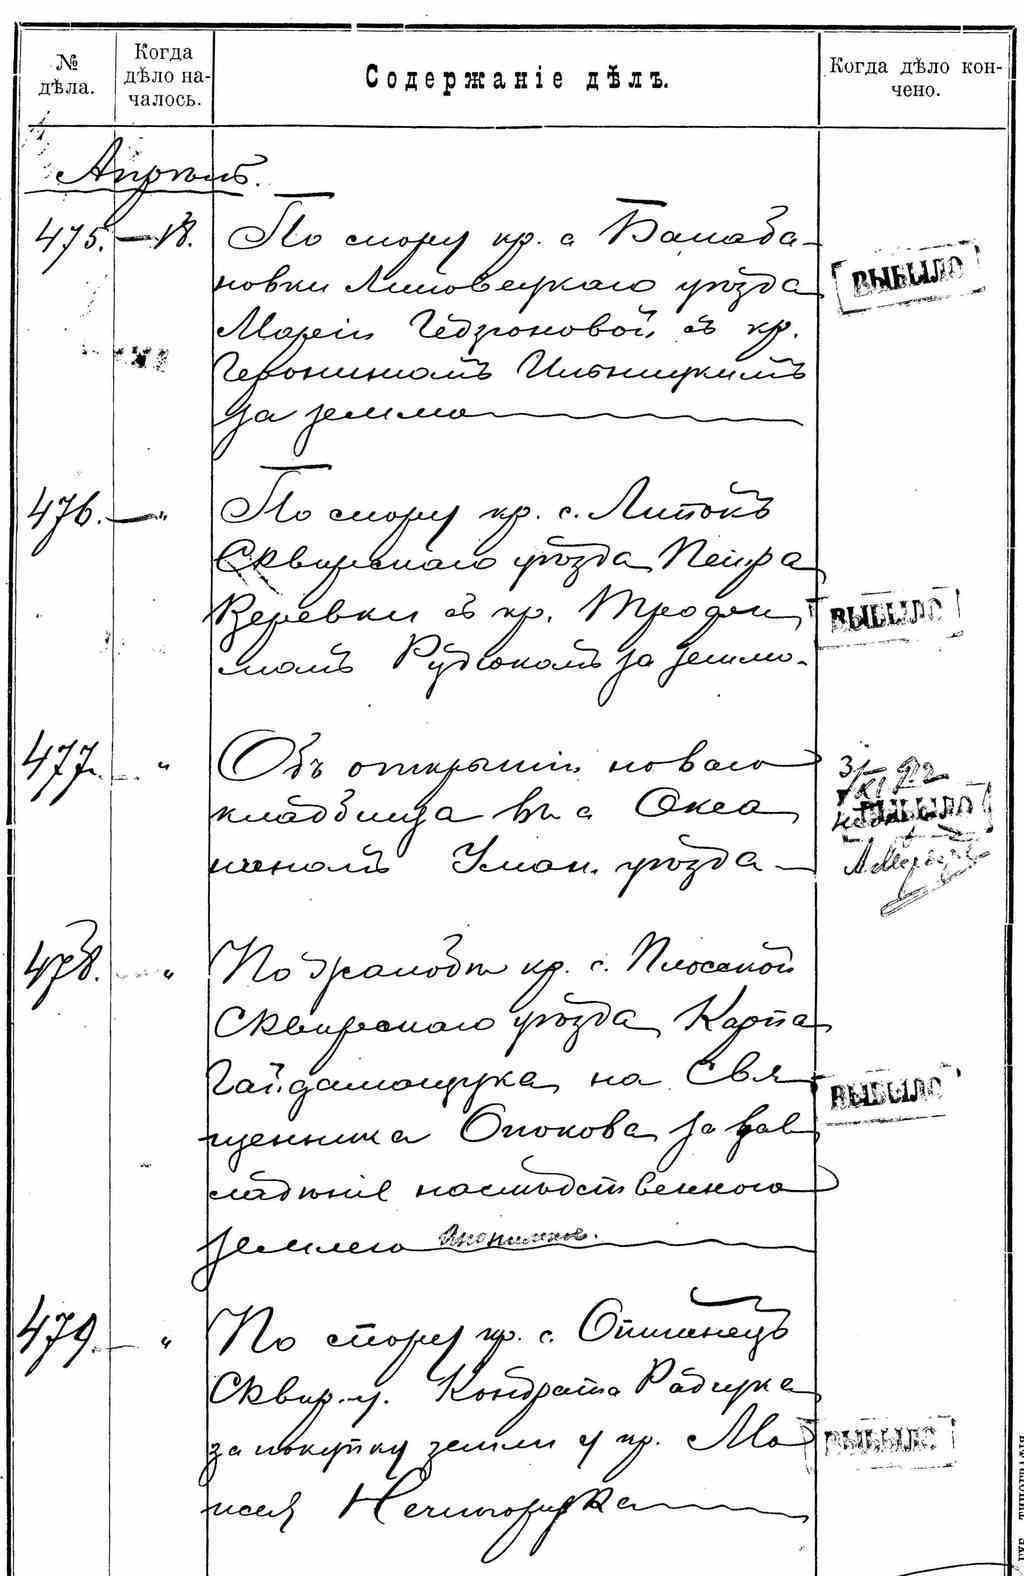 № дѣла.
Когда дѣло началось.
Содержаніе дѣлъ.
Когда дѣло кончено.
Апрѣль.
475. — 18. По спору кр. с Балаба-
новки Липовецкаго уѣзда
Маріи съ кр.
Геронимомъ Ильницкимъ
за землю
ВЫБЫЛО
476. — " По спору кр. с. Липокъ
Сквирскаго уѣзда Петра
Веревки съ кр. Трофи
момъ Рудюкомъ за землю.
ВЫБЫЛО
477. — " Объ открытіи новаго
кладбища въ с
Уман. уѣзда —
ВЫБЫЛО
478. — " По жалобѣ кр. с. Плоской
Сквирскаго уѣзда Карпа
Гайдамащука на Свя
щенника Опокова за зав
ладѣніе наслѣдственною
землею
ВЫБЫЛО
479. — " По спору кр. с.
Сквир. у. Кондрата Радчука
за покупку земли у кр. Мо
исея
ВЫБЫЛО